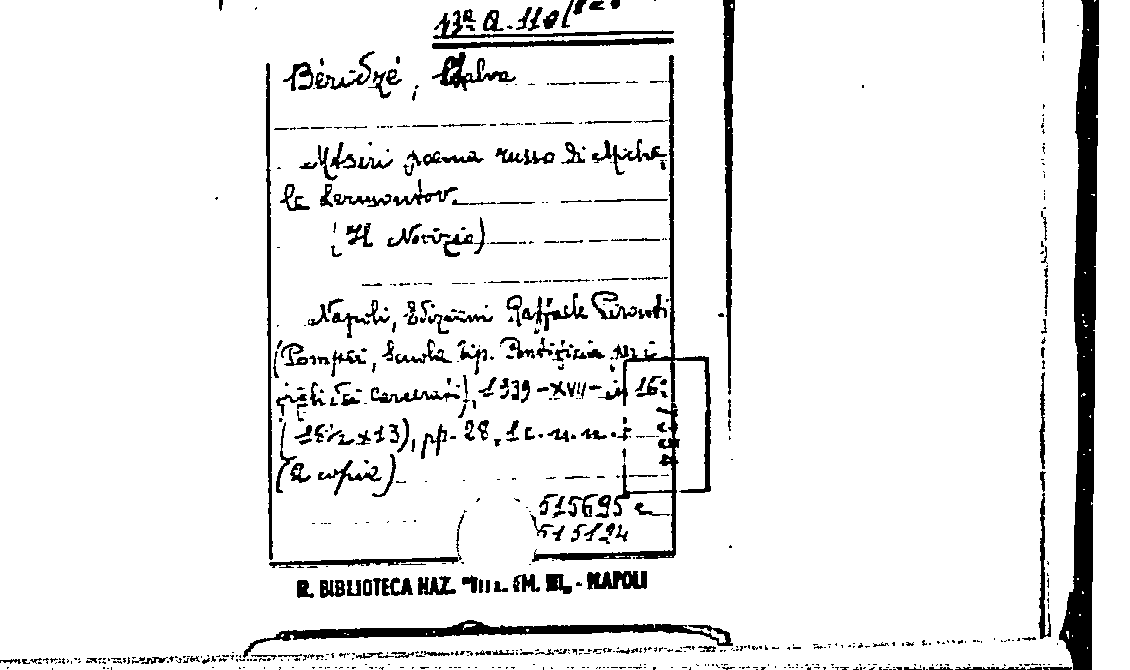 13ª Q. 110/
Béridzé, Chalva
Mtsiri poema russo di Miche
le Lermontov.
(Il Novizio)
Napoli, Edizioni Raffaele Pironti
(Pompei, Scuola Tip. Pontificia per i
figli dei carcerati), 1939-XVII- in 16º
(15½x13), pp. 28, 1 c. n. n.
(2 copia)
515695 e
515124
R. BIBLIOTECA NAZ. "VITT. EM. III„ - NAPOLI